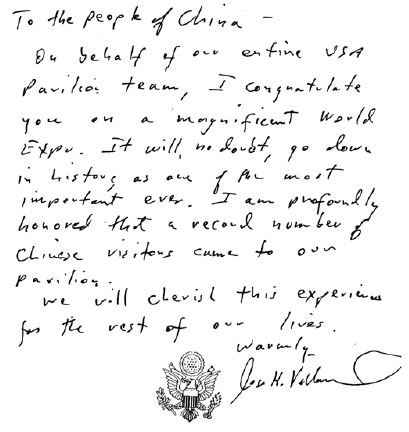 To the people of China –
On behalf of our entire USA
Pavilion team, I congratulate
you on a magnificent World
Expo. It will, no doubt, go down
in history as one of the most
important ever. I am profoundly
honored that a record number of
Chinese visitors came to our
pavilion.
We will cherish this experience
for the rest of our lives.
Warmly